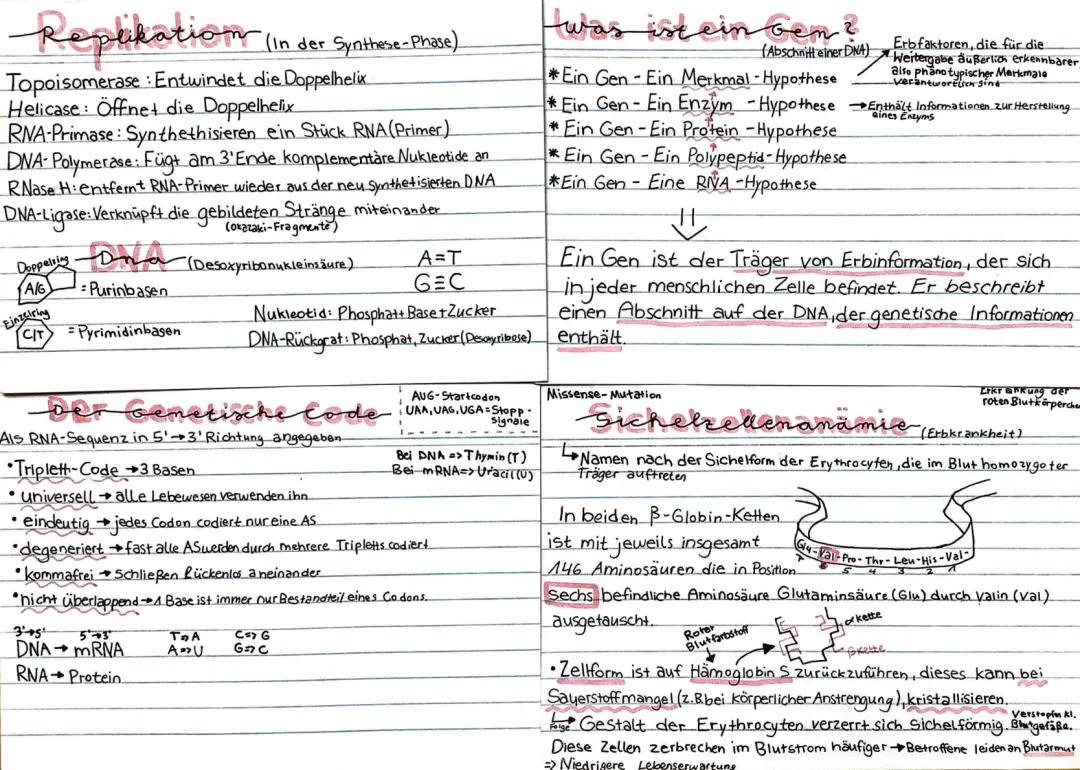 Replikation (In der Synthese-Phase)
Topoisomerase: Entwindet die Doppelhelix
Helicase: Öffnet die Doppelhelix
RNA-Primase: Synthethisieren ein Stück RNA (Primer)
DNA-Polymerase: Fügt am 3'Ende komplementäre Nukleotide an
RNase H: entfernt RNA-Primer wieder aus der neu synthetisierten DNA
DNA-Ligase: Verknüpft die gebildeten Stränge miteinander
(Okazaki-Fragmente)
DNA (Desoxyribonukleinsäure)
Doppelring
A/G = Purinbasen
Einzelring
C/T = Pyrimidinbasen
A=T
G≡C
Nukleotid: Phosphat+Base+Zucker
DNA-Rückgrat: Phosphat, Zucker (Desoxyribose)
Was ist ein Gen?
(Abschnitt einer DNA)
Erbfaktoren, die für die
Weitergabe äußerlich erkennbarer
also phänotypischer Merkmale
verantwortlich sind
* Ein Gen - Ein Merkmal-Hypothese
* Ein Gen - Ein Enzym -Hypothese → Enthält Informationen zur Herstellung
eines Enzyms
* Ein Gen - Ein Protein -Hypothese
* Ein Gen - Ein Polypeptid-Hypothese
* Ein Gen - Eine RNA -Hypothese
⇓
Ein Gen ist der Träger von Erbinformation, der sich
in jeder menschlichen Zelle befindet. Er beschreibt
einen Abschnitt auf der DNA, der genetische Informationen
enthält.
Der Genetische Code
AUG-Startcodon
UAA, UAG, UGA = Stopp-
Signale
Als RNA-Sequenz in 5'→3' Richtung angegeben
Bei DNA => Thymin (T)
Bei mRNA => Uracil (U)
• Triplett-Code → 3 Basen
• universell → alle Lebewesen verwenden ihn
• eindeutig → jedes Codon codiert nur eine AS
• degeneriert → fast alle AS werden durch mehrere Tripletts codiert
• kommafrei → schließen lückenlos aneinander
• nicht überlappend → 1 Base ist immer nur Bestandteil eines Codons.
3'→5' 5'→3' T=>A C=>G
DNA → mRNA A=>U G=>C
RNA → Protein
Missense-Mutation
Erkrankung der
roten Blutkörperche
Sichelzellenanämie (Erbkrankheit)
↳ Namen nach der Sichelform der Erythrocyten, die im Blut homozygoter
Träger auftreten
In beiden β-Globin-Ketten
ist mit jeweils insgesamt
146 Aminosäuren die in Position
Glu-Val-Pro-Thr-Leu-His-Val-
7 6 5 4 3 2 1
sechs befindliche Aminosäure Glutaminsäure (Glu) durch Valin (Val)
ausgetauscht.
Roter
Blutfarbstoff
αkette
βkette
• Zellform ist auf Hämoglobin S zurückzuführen, dieses kann bei
Sauerstoffmangel (z.B bei körperlicher Anstrengung), kristallisieren
Folge ↳ Gestalt der Erythrocyten verzerrt sich Sichelförmig.
Verstopfn kl.
Blutgefäße.
Diese Zellen zerbrechen im Blutstrom häufiger → Betroffene leiden an Blutarmut
=> Niedrigere Lebenserwartung